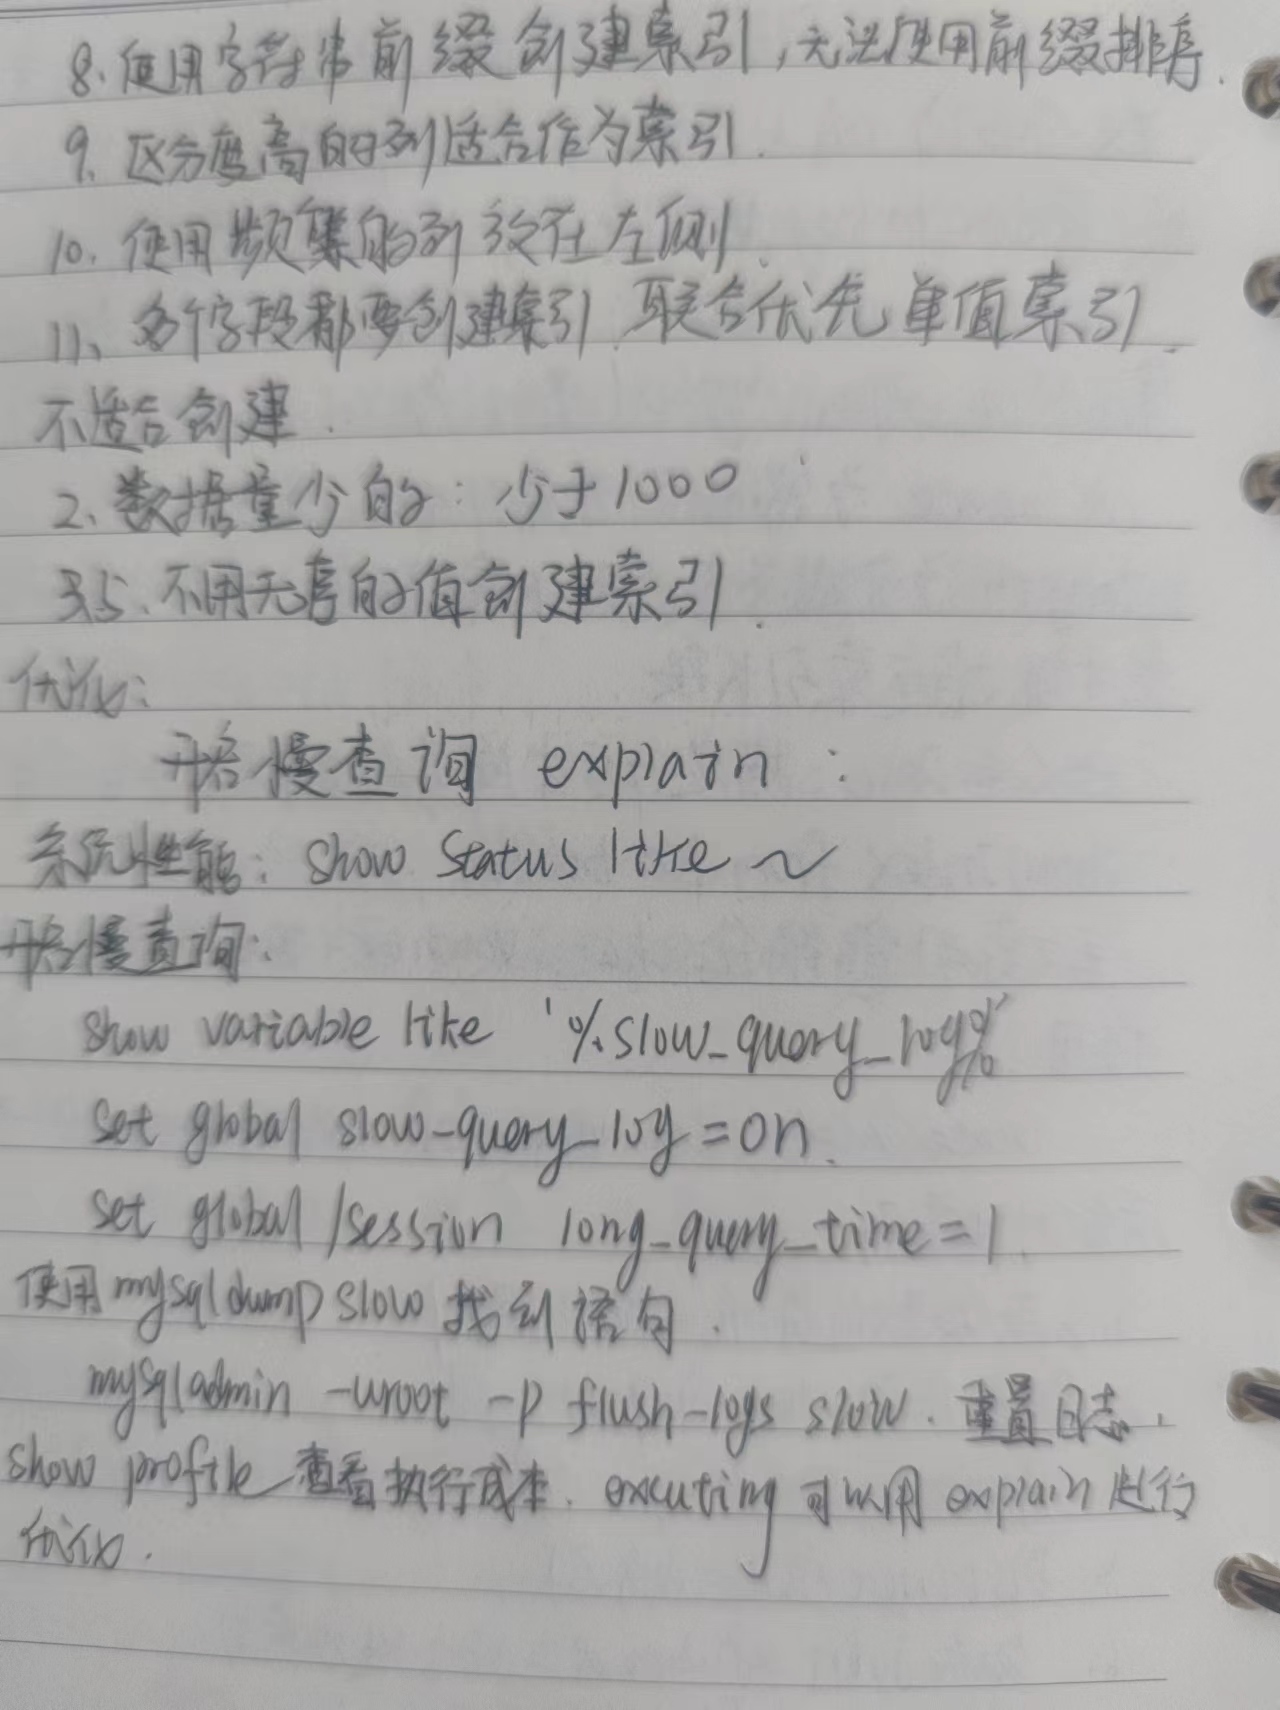 8. 使用字符串前缀创建索引,无法使用前缀排序.
9. 区分度高的列适合作为索引.
10. 使用频繁的列放在左侧.
11、多个字段都要创建索引.联合优先单值索引.
不适合创建.
2、数据量少的:少于1000
5、不用无序的值创建索引.
优化:
开启慢查询 explain :
系统性能: show status like ~
开启慢查询:
show variable like '%slow_query_log%'
set global slow-query_log=on.
set global /session long_query_time=1.
使用mysqldumpslow找到语句.
mysqladmin -uroot -p flush-logs slow. 重置日志.
show profile 查看执行成本. excuting 可以用 explain 进行
优化.